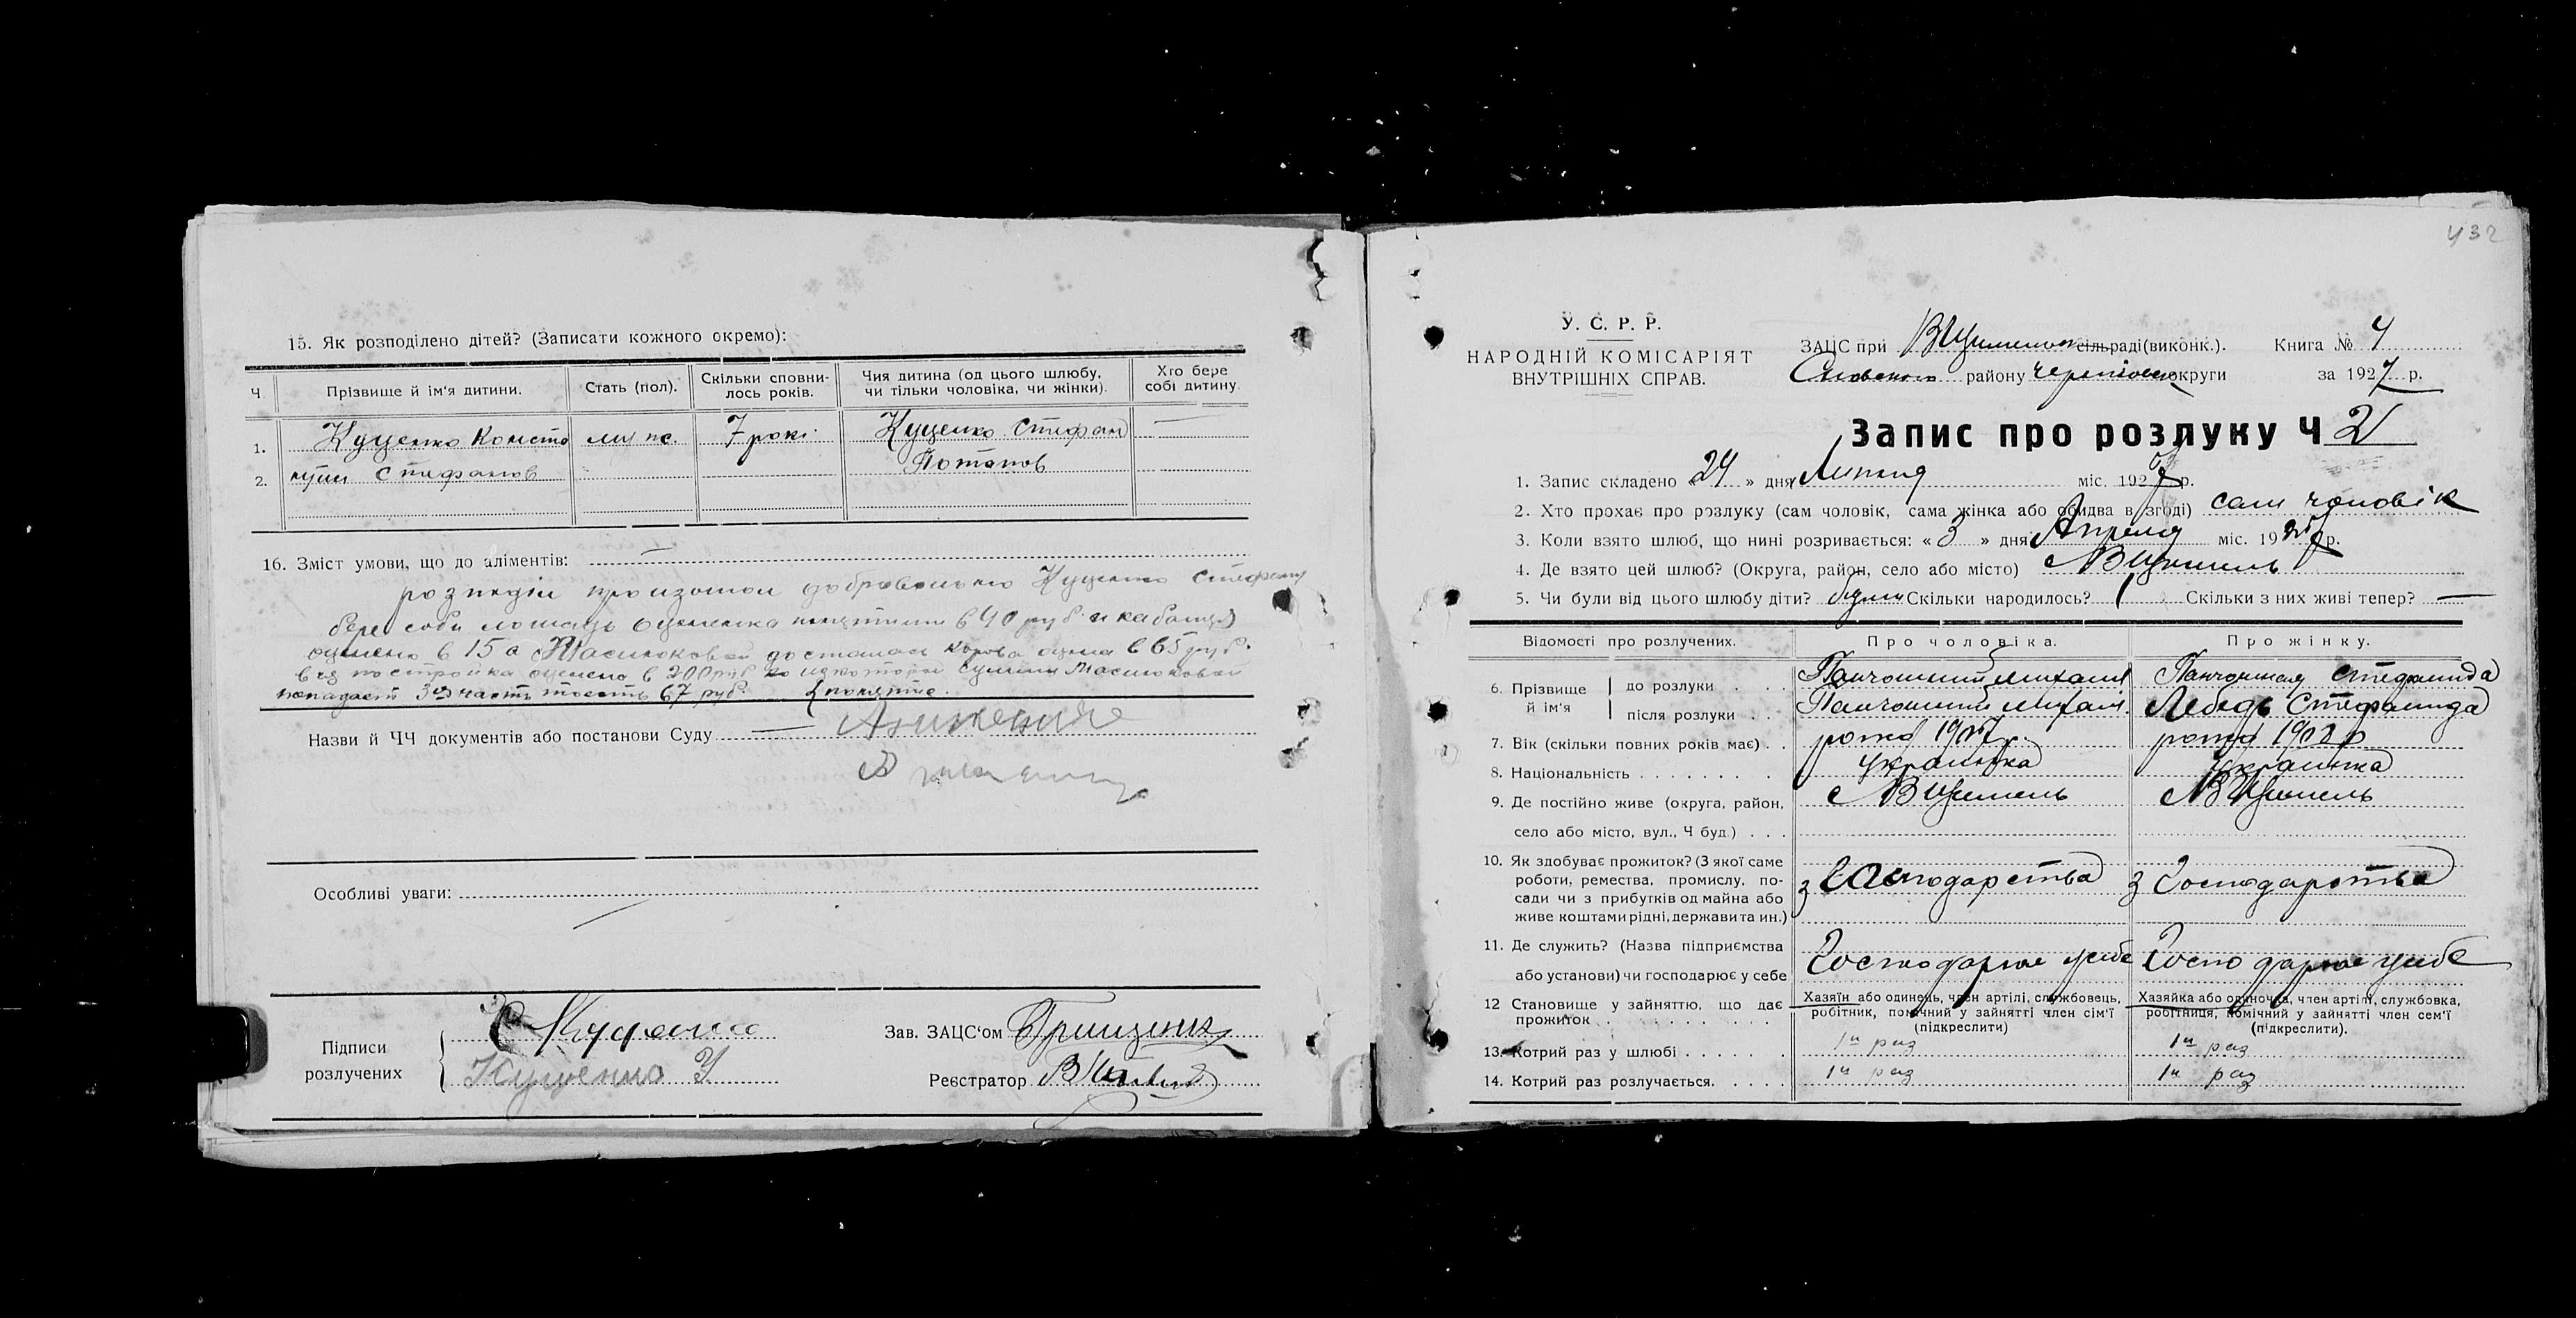 15. Як розподілено дітей? (Записати кожного окремо):
Ч.
Прізвище й ім'я дитини.
Стать (пол).
Скільки сповни-
лось років.
Чия дитина (од цього шлюбу,
чи тільки чоловіка, чи жінки).
Хто бере
собі дитину.
1. Куценко Конста муж пс. 7 рокі Куценко Стефан —
2. нтин Стефанов Потапов
16. Зміст умови, що до аліментів: —
розподіл произошол добровольно Куценко Стефану
бере соби лошадь оценена в 40 руб и кабанця
оценено в 15 а Масюковой досталась корова оцина в 65 руб.
вся постройка оценено в 200 руб суммы Масюковой
попадает 3я часть тоесть 67 руб.
Назви й ЧЧ документів або постанови Суду —
Особливі уваги:
Підписи
розлучених
С Куценко
Куценко У
Зав. ЗАЦС'ом Грищенко
Реєстратор
432
У. С. Р. Р.
НАРОДНІЙ КОМІСАРІЯТ
ВНУТРІШНІХ СПРАВ.
ЗАЦС при сільраді (виконк.). Книга № 4
Сновського району округи за 1927 р.
Запис про розлуку Ч 2
1. Запис складено « 24 » дня Липня міс. 1927 р.
2. Хто прохає про розлуку (сам чоловік, сама жінка або обидва в згоді) сам чоловік
3. Коли взято шлюб, що нині розривається: « 3 » дня Апреля міс. 19 р.
4. Де взято цей шлюб? (Округа, район, село або місто)
5. Чи були від цього шлюбу діти? були Скільки народилось? 1 Скільки з них живі тепер? —
Відомості про розлучених. Про чоловіка. Про жінку.
6. Прізвище й ім'я
до розлуки . . . Михаил Стефанида
після розлуки . . Михаил Лебедь Стефанида
7. Вік (скільки повних років має) . . рожд 1907 р. рожд 1908 р
8. Національність . . . . . . . . українка українка
9. Де постійно живе (округа, район,
село або місто, вул., Ч буд.) . . .
10. Як здобуває прожиток? (З якої саме
роботи, ремества, промислу, по-
сади чи з прибутків од майна або
живе коштами рідні, держави та ин.)
з Господарства з Господарства
11. Де служить? (Назва підприємства
або установи) чи господарює у себе
Господарює усебе Господарює усебе
12 Становище у зайняттю, що дає
прожиток . . . . . . . . . .
Хазяїн або одинець, член артілі, службовець,
робітник, помічний у зайнятті член сім'ї
(підкреслити)
Хазяйка або одиночка, член артілі, службовка,
робітниця, помічний у зайнятті член сем'ї
(підкреслити).
13. Котрий раз у шлюбі . . . . . . 1й раз 1й раз
14. Котрий раз розлучається. . . . . 1й раз 1й раз